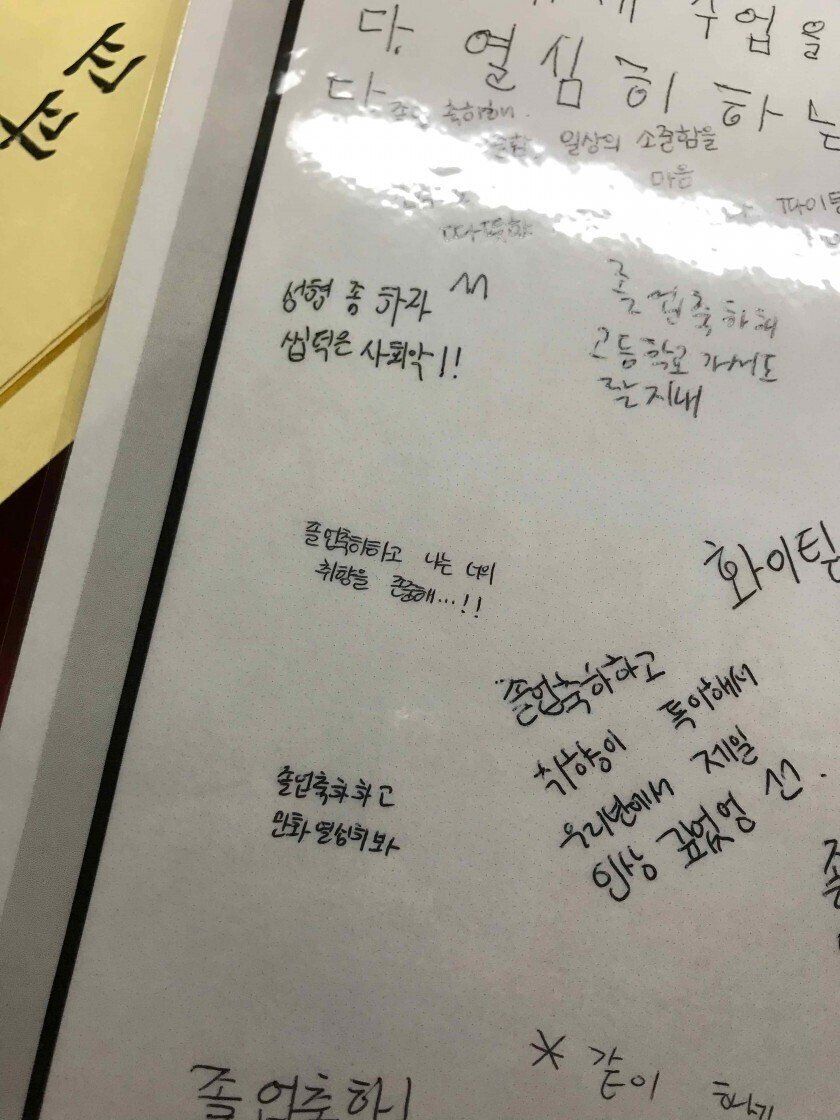 수업을
다. 열심히 하는
다
졸업 축하해.
일상의 소중함을
마음
따뜻한
성형 좀 하자
씹덕은 사회악!!
졸업축하해
고등학교 가서도
잘지내
졸업축하하고 나는 너의
취향을 존중해...!!
화이팅
졸업축하하고
취향이 특이해서
우리반에서 제일
인상 깊었엉 선.
졸업축하하고
만화 열심히봐
졸업축하
* 같이